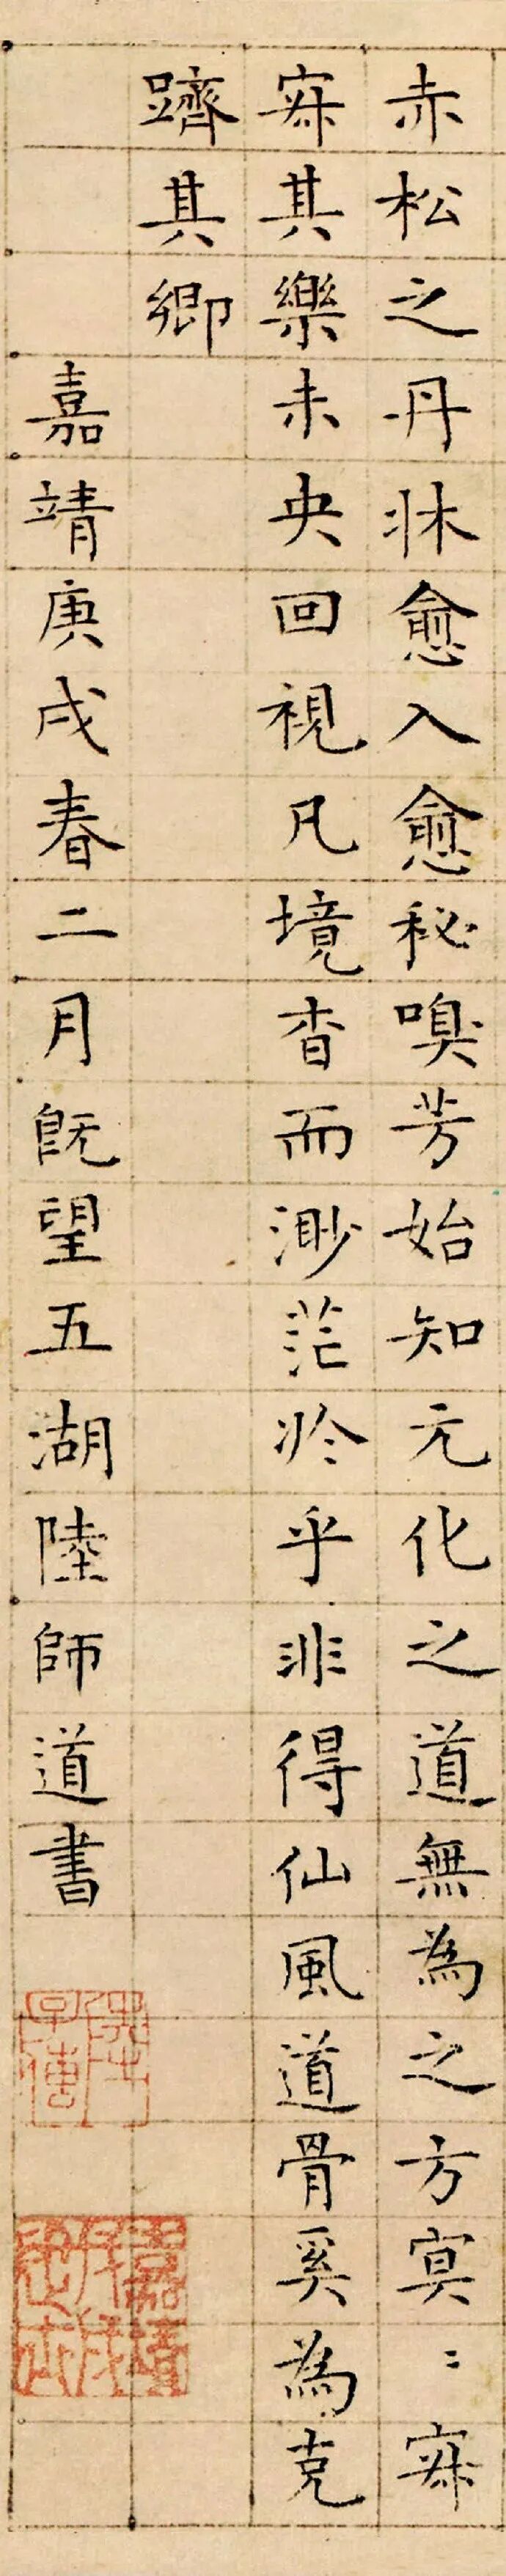 赤松之丹牀愈入愈秘嗅芳始知元化之道無為之方冥〻寂
寂其樂未央回視凡境杳而渺茫於乎非得仙風道骨奚為克
躋其卿
嘉靖庚戌春二月既望五湖陸師道書
陸氏子傳